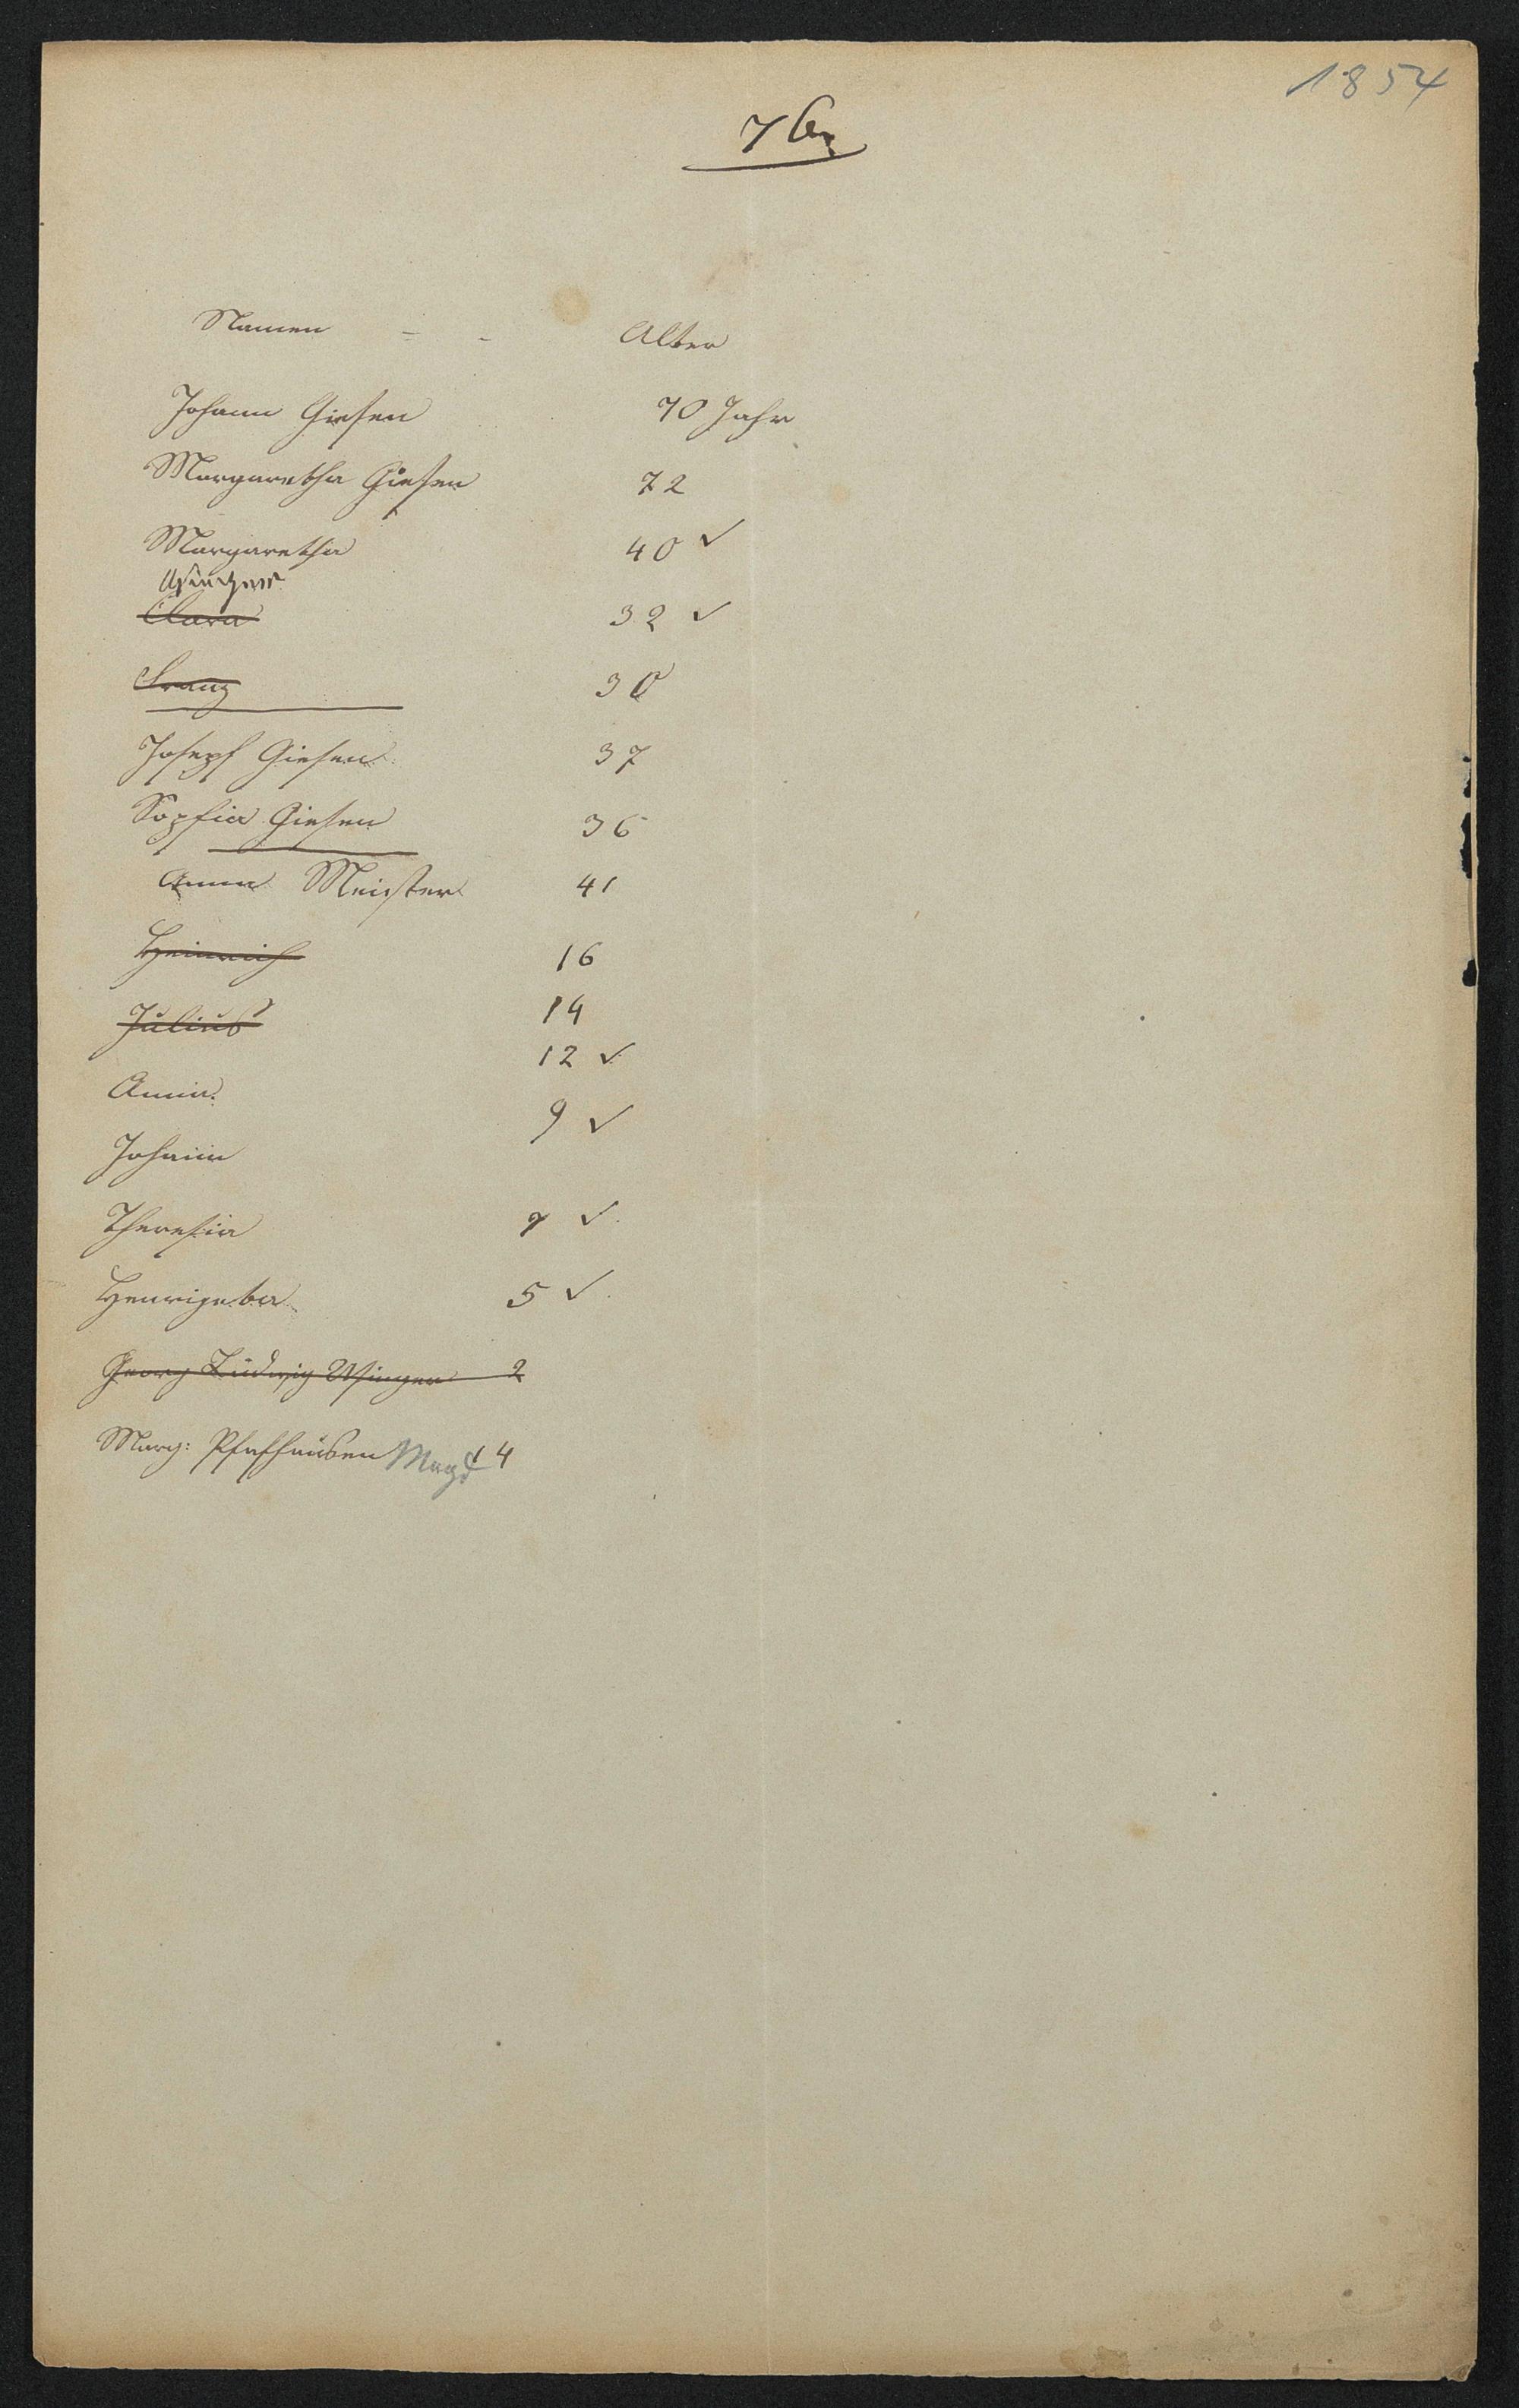 1854
Namen = - Alter
Johann Giesen 70 Jahr
Margaretha Giesen 72
Margaretha 40 ✓
Clara 32 ✓
Franz 30
Joseph Giesen 37
Sophia Giesen 36
Anna Meister 41
Heinrich 16
Julius 14
12 ✓
Anna.
9 ✓
Johann
Theresia 7 ✓
Henrigeta 5 ✓
Georg Ludwig Usinger 2
Marg: Pfaffhausen Magd 14